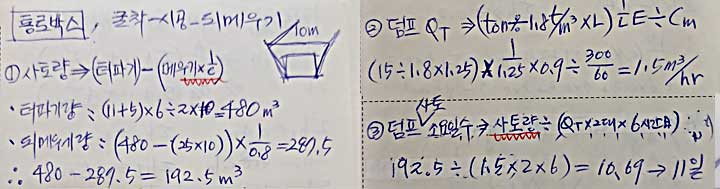 통로박스, 굴착-시공-되메우기
10m
① 사토량 ⇒ (터파기) - (메우기 × 1/C)
· 터파기량 : (11+5)×6÷2×10 = 480m³
· 되메우기량 : (480-(25×10))×1/0.8 = 287.5
∴ 480-287.5 = 192.5m³
② 덤프 QT ⇒ (ton÷1.8t/m³×L) 1/L E÷Cm
(15÷1.8×1.25)×1/1.25×0.9÷300/60 = 1.5m³/hr
사토
③ 덤프 소요일수 ⇒ 사토량 ÷ (QT×2대×6시간/日)
192.5÷(1.5×2×6) = 10.69 → 11일